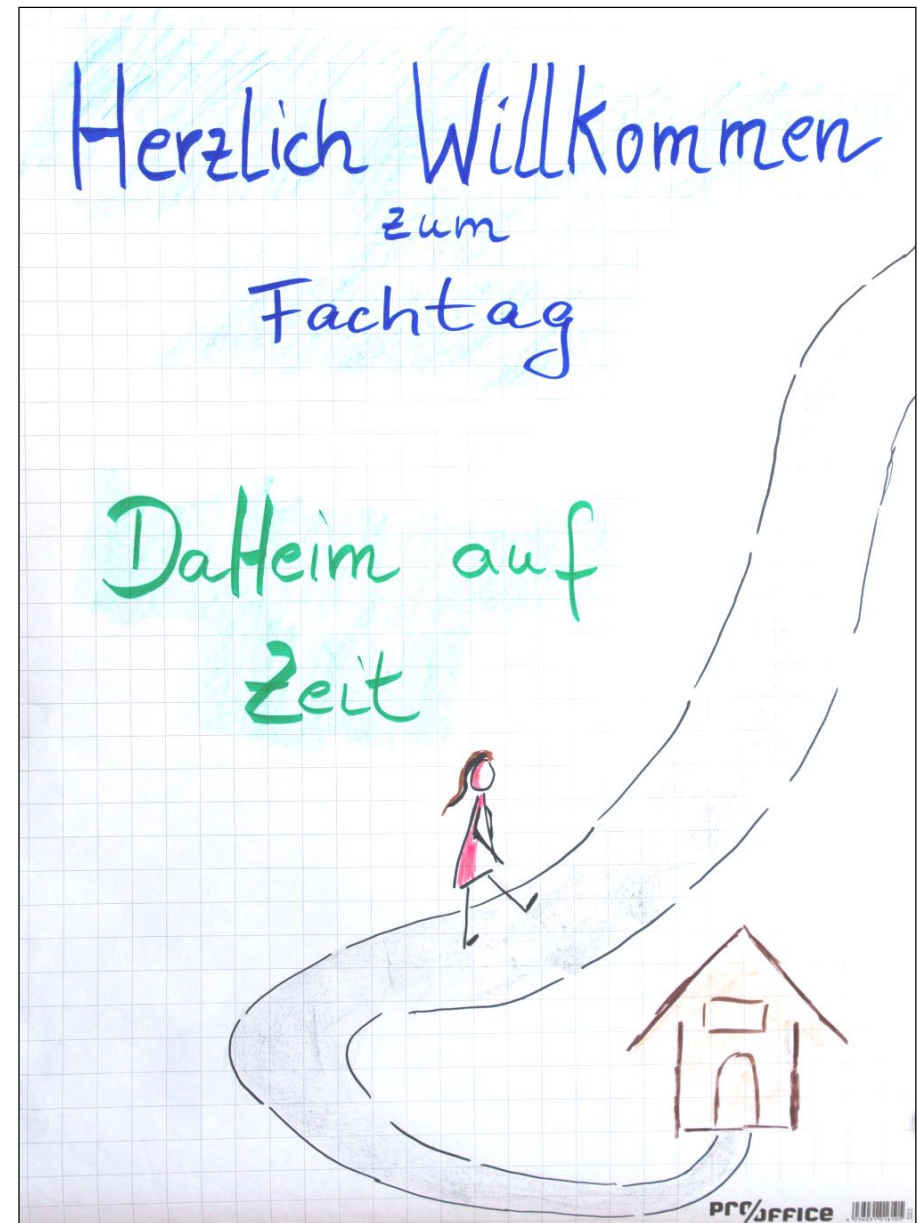 Herzlich Willkommen
zum
Fachtag
DaHeim auf
Zeit
PRO/OFFICE